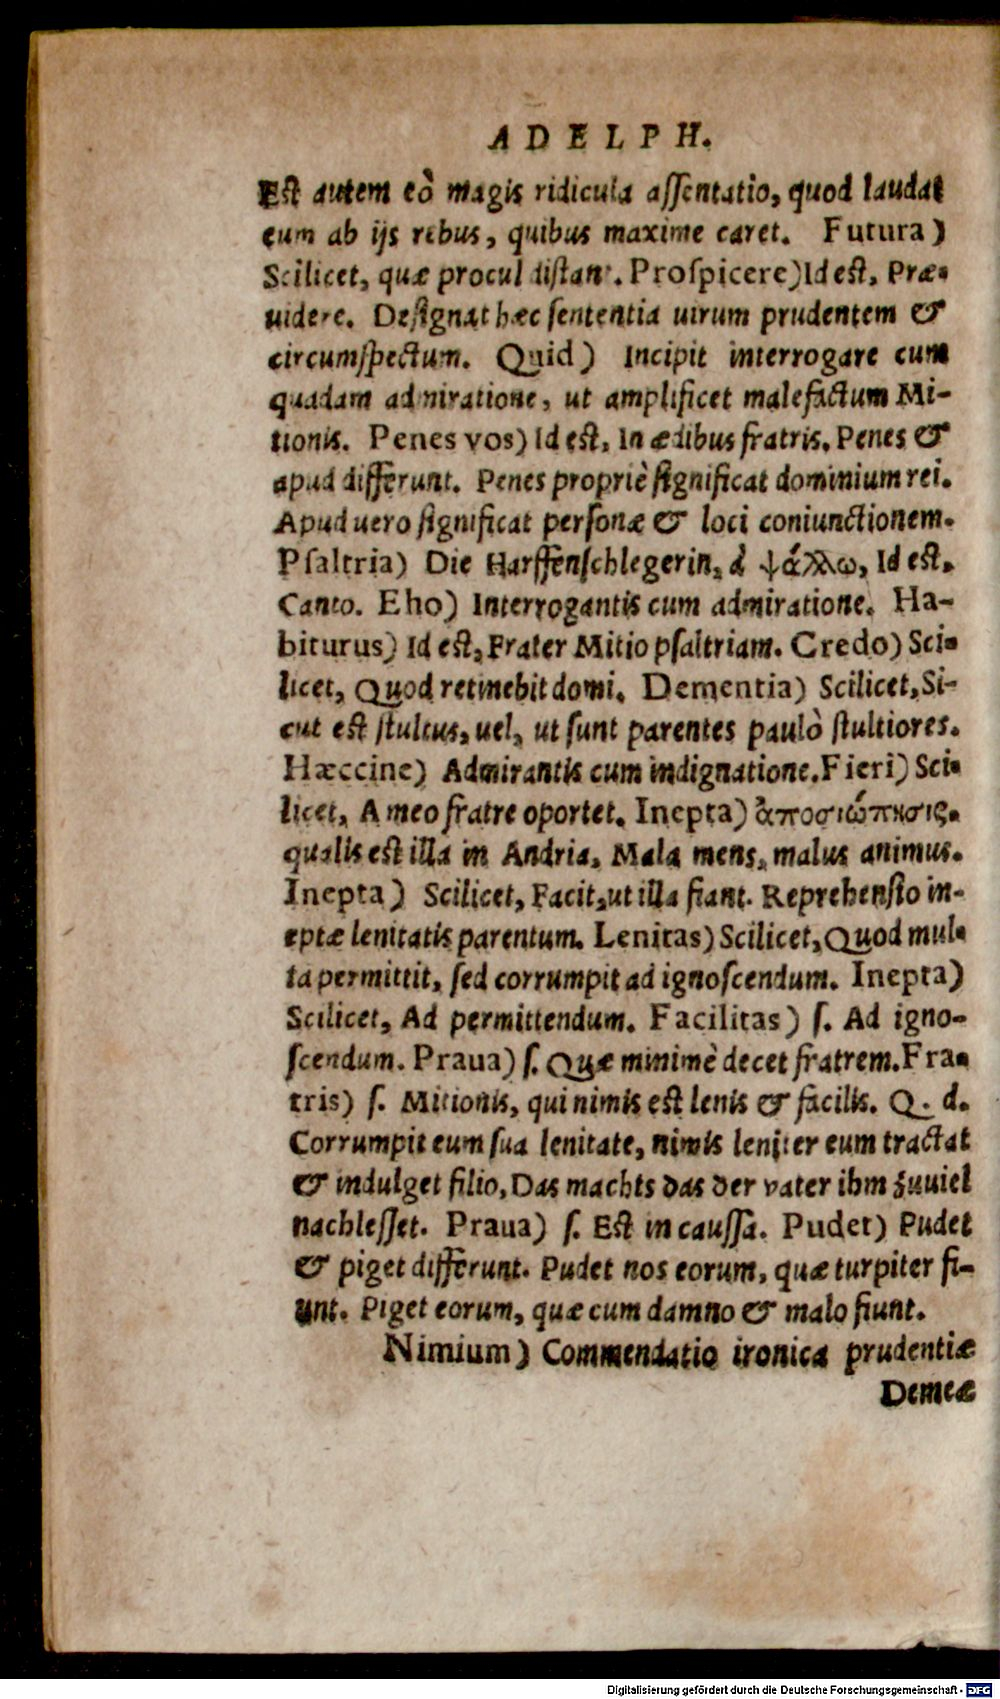 ADELPH.
Est autem eò magis ridicula assentatio, quod laudat
eum ab ijs rebus, quibus maxime caret. Futura)
Scilicet, quæ procul distant. Prospicere) Id est, Præ-
uidere. Designat hæc sententia uirum prudentem &
circumspectum. Quid) Incipit interrogare cum
quadam admiratione, ut amplificet malefactum Mi-
tionis. Penes vos) Id est, In ædibus fratris. Penes &
apud differunt. Penes propriè significat dominium rei.
Apud uero significat personæ & loci coniunctionem.
Psaltria) Die Harffenschlegerin, à ψάλλω, Id est,
Canto. Eho) Interrogantis cum admiratione. Ha-
biturus) Id est, Frater Mitio psaltriam. Credo) Sci-
licet, Quod retinebit domi. Dementia) Scilicet, Si-
cut est stultus, uel, ut sunt parentes paulò stultiores.
Hæccine) Admirantis cum indignatione. Fieri) Sci-
licet, A meo fratre oportet. Inepta) ἀποσιώπησις.
qualis est illa in Andria, Mala mens, malus animus.
Inepta) Scilicet, Facit, ut illa fiant. Reprehensio in-
eptæ lenitatis parentum. Lenitas) Scilicet, Quod mul-
ta permittit, sed corrumpit ad ignoscendum. Inepta)
Scilicet, Ad permittendum. Facilitas) s. Ad igno-
scendum. Praua) s. Quæ minimè decet fratrem. Fra-
tris) s. Mitionis, qui nimis est lenis & facilis. Q. d.
Corrumpit eum sua lenitate, nimis leniter eum tractat
& indulget filio, Das machts das der vater ihm zuuiel
nachlesset. Praua) s. Est in caussa. Pudet) Pudet
& piget differunt. Pudet nos eorum, quæ turpiter fi-
unt. Piget eorum, quæ cum damno & malo fiunt.
Nimium) Commendatio ironica prudentiæ
Demeæ
Digitalisierung gefördert durch die Deutsche Forschungsgemeinschaft - DFG